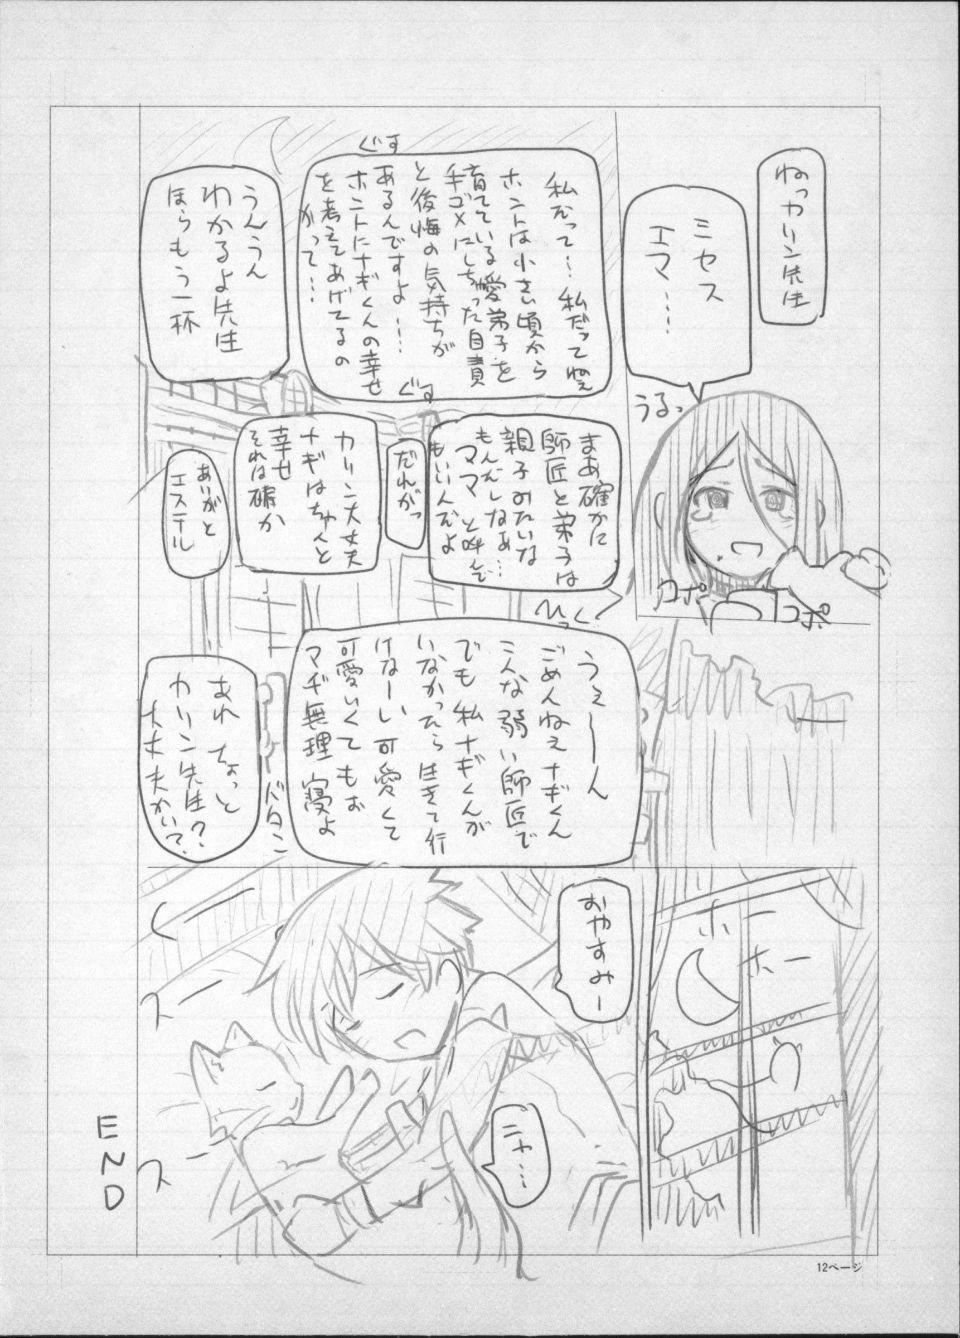 ねっカリン先生
ミセス
エマ…
うるっ
コポ
コポ
ぐす
私だって…私だってねぇ
ホントは小さい頃から
育てている愛弟子を
手ゴメにしちゃった自責
と後悔の気持ちが
あるんですよ…
ホントにナギくんの幸せ
を考えてあげてるの
かって…
ぐす
うんうん
わかるよ先生
ほらもう一杯
まあ確かに
師匠と弟子は
親子みたいな
もんだしなぁ…
ママと呼んで
もいいんだよ
だれがっ
カリン大丈夫
ナギはちゃんと
幸せ
それは確か
ありがと
エステル
ひっく
うぇーーん
ごめんねぇナギくん
こんな弱い師匠で
でも私ナギくんが
いなかったら生きて行
けなーい可愛くて
可愛いくてもぉ
マヂ無理寝よ
ドタン
あれ ちょっと
カリン先生?
大丈夫かい?
ホー
ホー
おやすみー
ニャ…
スー
スー
END
12ページ